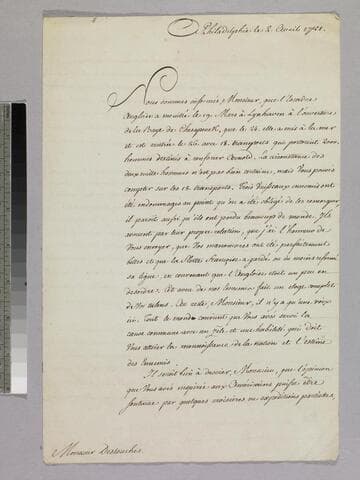 A Philadelphie le 2 Avril 1781.
Nous sommes informés, Monsieur, que l'Escadre
Angloise a mouillé le 19 Mars à Lynhaven à l'ouverture
de la Baye de Chesapeack, que le 24 elle a mis à la mer
et est rentrée le 26 avec 18 transports qui portoient 2000
hommes destinés à renforcer Arnold. La circonstance des
deux mille hommes n'est pas bien certaine, mais Vous pouvez
compter sur les 18 transports. Trois Vaisseaux ennemis ont
été endommagés au point qu'on a été obligé de les remorquer
il paroit aussi qu'ils ont perdu beaucoup de monde. Ils
avouent par leur propre relation, que j'ai l'honneur de
Vous envoyer, que Vos manoeuvres ont été parfaitement
faites et que la flotte Françoise a gardé ou du moins reformé
sa ligne, en convenant que l'Angloise étoit un peu en
desordre. Cet aveu de nos Ennemis fait un eloge complet
de Vos talens. Au reste, Monsieur, il n'y a qu'une voix
ici. Tout le monde convient que Vous avés servi la
cause commune avec un zèle et une habileté qui doit
Vous attirer la reconnoissance de la nation et l'estime
des Ennemis.
Il seroit bien à desirer, Monsieur, que l'opinion
que Vous avés inspirée aux Américains puisse être
soutenue par quelques croisieres ou expéditions partielles,
Monsieur Destouches.